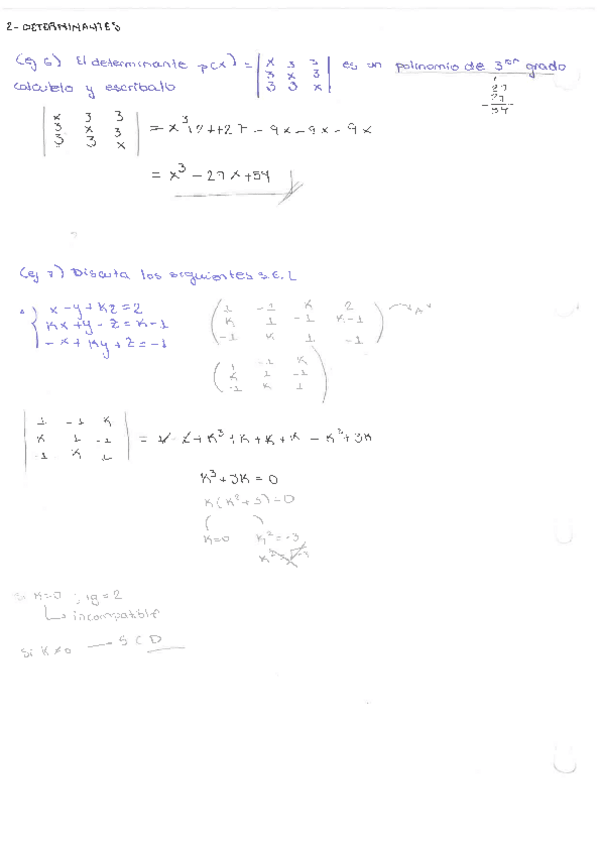 2- DETERMINANTES
(ej 6) El determinante p(x) = | x 3 3 | es un polinomio de 3er grado
| 3 x 3 |
| 3 3 x |
calculelo y escribalo
27
27
54
| x 3 3 |
| 3 x 3 | = x³ + 27 + 27 - 9x - 9x - 9x
| 3 3 x |
= x³ - 27x + 54
(ej 7) Discuta los siguientes S.E.L
x - y + kz = 2
kx + y - z = k - 1
- x + ky + z = -1
( 1 -1 k 2 )
( k 1 -1 k-1 ) A*
( -1 k 1 -1 )
( 1 -1 k )
( k 1 -1 )
( -1 k 1 )
| 1 -1 k |
| k 1 -1 | = 1 - 1 + k³ + k + k + k = k³ + 3k
| -1 k 1 |
k³ + 3k = 0
k(k² + 3) = 0
k=0 k² = -3
Si k=0 ; rg = 2
incompatible
Si k≠0 S C D